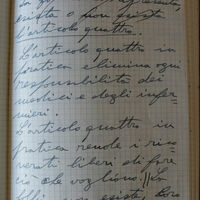 esista o non esista
l'articolo quattro.
L'articolo quattro in
pratica elimina ogni
responsabilità dei
medici e degli infer-
mieri.
L'articolo quattro in
pratica rende i rico-
verati liberi di fare
ciò che vogliono
esiste,